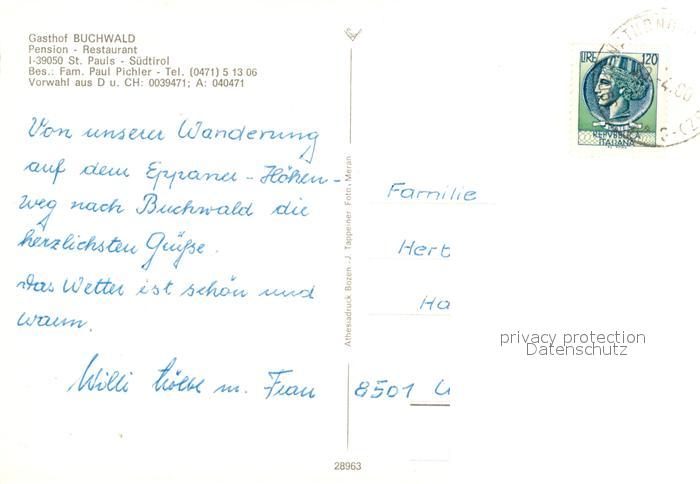 Gasthof BUCHWALD
Pension - Restaurant
I-39050 St. Pauls - Südtirol
Bes.: Fam. Paul Pichler - Tel. (0471) 5 13 06
Vorwahl aus D u. CH: 0039471; A: 040471
Von unserer Wanderung
auf dem Eppaner-Höhen-
weg nach Buchwald die
herzlichsten Grüße.
Das Wetter ist schön und
warm.
Willi m. Frau
Athesiadruck Bozen - J. Tappeiner Foto, Meran
28963
LIRE 120
REPVBBLICA
ITALIANA
Familie
Herb
Ha
8501
privacy protection
Datenschutz